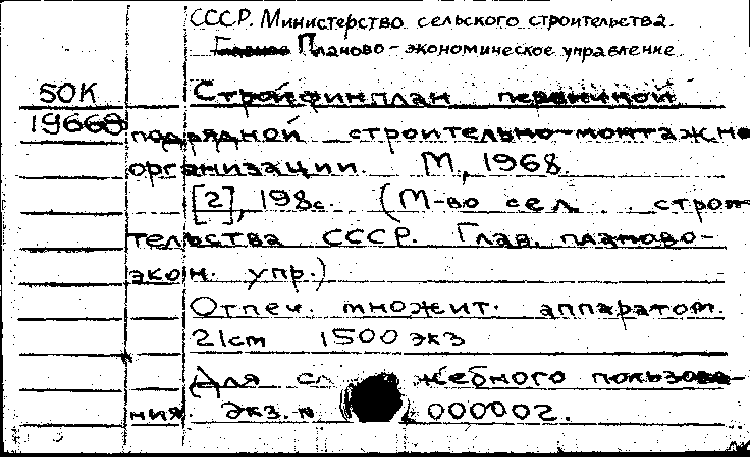 СССР. Министерство сельского строительства.
Планово-экономическое управление
50К Стройфинплан первичной
19668 подрядной строительно-монтажно
организации. М., 1968.
[2], 198с. (М-во сел. строи-
тельства СССР. Глав. планово-
экон. упр.)
Отпеч. множит. аппаратом.
21cm 1500 экз
Для служебного пользова-
ния. Экз. № 000002.